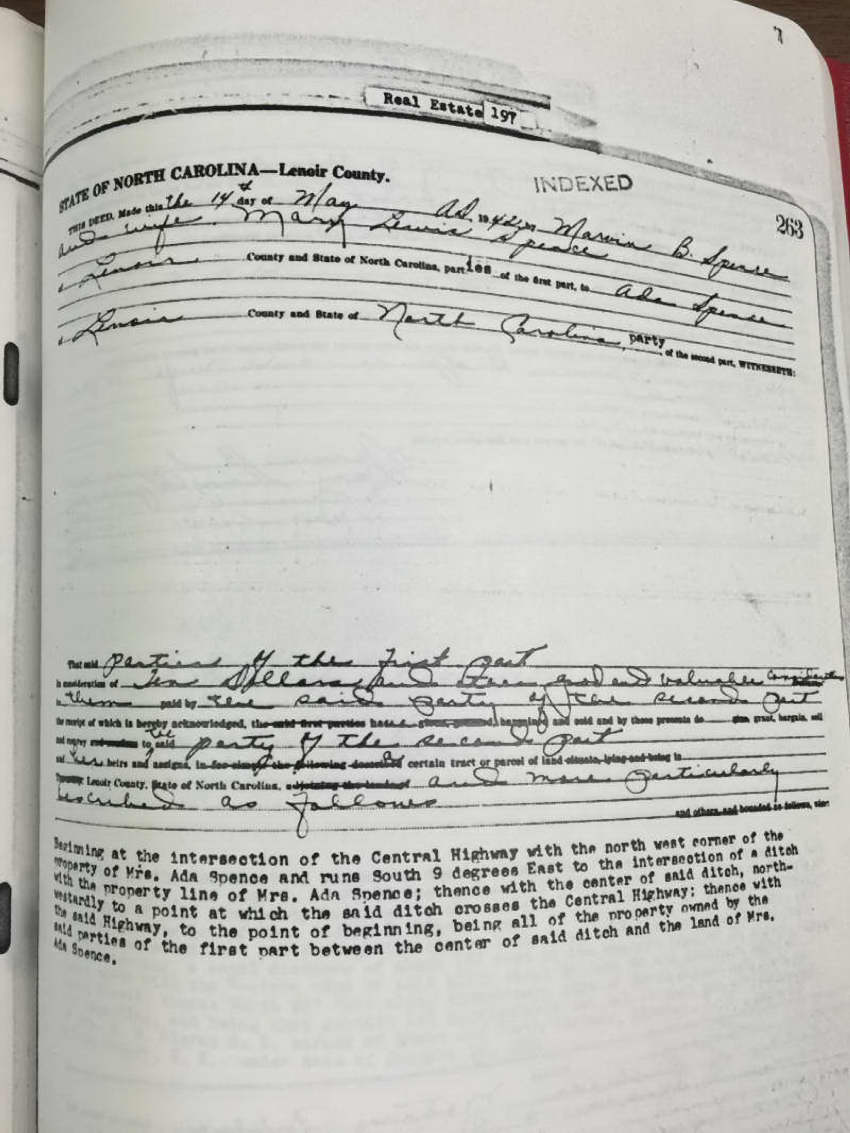 7
Real Estate 197
STATE OF NORTH CAROLINA—Lenoir County.
INDEXED
263
THIS DEED, Made this the 14th day of May AD. 1942, Marvin B. Spence
and wife Mary Lewis Spence
Lenoir County and State of North Carolina, parties of the first part, to Ada Spence
of Lenoir County and State of North Carolina, party of the second part, WITNESSETH:
That said parties of the first part
in consideration of Ten Dollars and other good and valuable considerations
to them paid by the said party of the second part
the receipt of which is hereby acknowledged, the said first parties have given, granted, bargained and sold and by these presents do give, grant, bargain, sell
and convey to the said party of the second part
and her heirs and assigns, in fee simple the following described certain tract or parcel of land situate, lying and being in
Lenoir County, State of North Carolina, adjoining the lands of and more particularly
described as follows
and others, and bounded as follows, viz:
Beginning at the intersection of the Central Highway with the north west corner of the
property of Mrs. Ada Spence and runs South 9 degrees East to the intersection of a ditch
with the property line of Mrs. Ada Spence; thence with the center of said ditch, north-
westardly to a point at which the said ditch crosses the Central Highway; thence with
the said Highway, to the point of beginning, being all of the property owned by the
said parties of the first part between the center of said ditch and the land of Mrs.
Ada Spence.